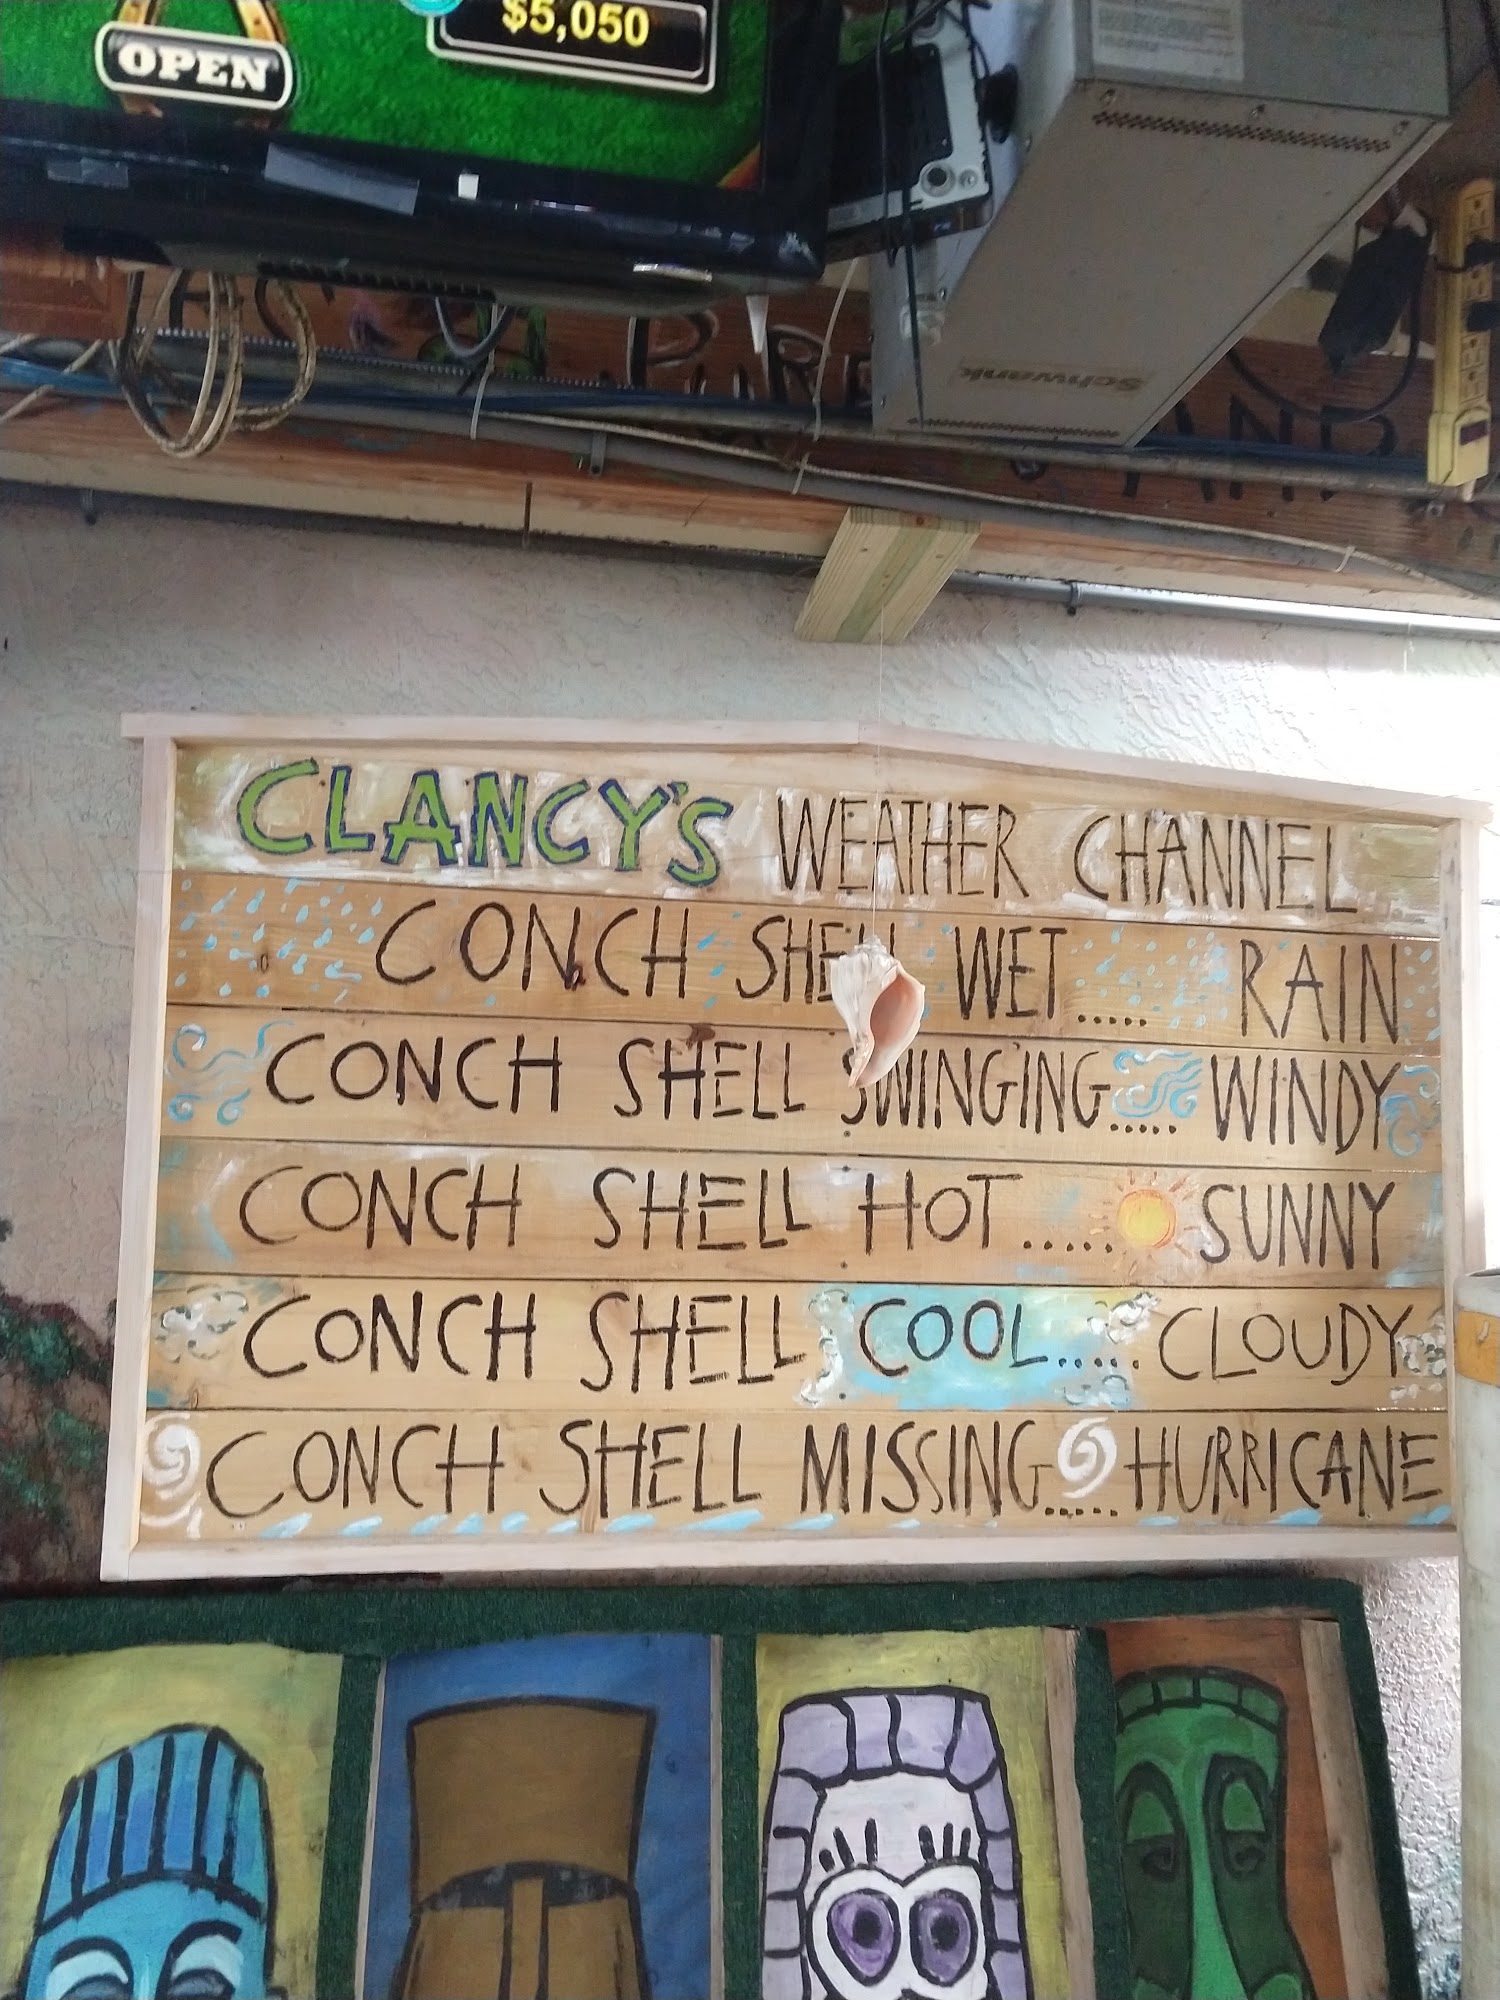 $5,050
OPEN
PURE
AND
Schwank
CLANCY'S WEATHER CHANNEL
CONCH SHELL WET..... RAIN
CONCH SHELL SWINGING..... WINDY
CONCH SHELL HOT..... SUNNY
CONCH SHELL COOL..... CLOUDY
CONCH SHELL MISSING..... HURRICANE